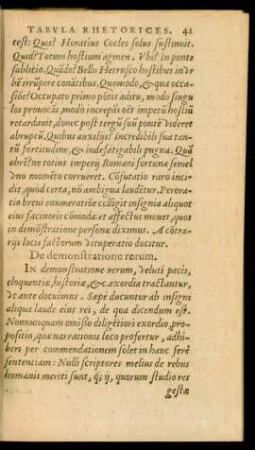 TABVLA RHETORICES. 41
test: Quis? Horatius Cocles solus sustinuit.
Quid? Totum hostium agmen. Vbi? in ponte
sublitio. Quãdo? Bello Hetrusco hostibus in vr
bẽ irrũpere conãtibus. Quomodo, & qua occa
siõe? Occupato primo põtis aditu, modo singu
los prouocãs, modo increpãs oẽs impetũ hostiũ
retardauit, donec post tergũ suũ pontẽ videret
abruptũ. Quibus auxilijs? Incredibili sua tan
tũ fortitudine, & indefatigabili pugna. Quã
obrẽ? ne totius imperij Romani fortuna semel
vno momẽto corrueret. Cofutatio raro inci
dit, quod certa, nõ ambigua laudẽtur. Perora
tio breui enumeratiõe colligit insignia aliquot
eius facinoris cõmoda: et affectus mouet, quos
in demõstratione personæ diximus. A cõtra-
rijs locis factorum vituperatio ducitur.
De demonstratione rerum.
IN demonstratione rerum, veluti pacis,
eloquentiæ, historiæ, & exordia tractantur,
vt ante docuimus. Sæpe ducuntur ab insigni
aliqua laude eius rei, de qua dicendum est.
Nonnunquam omisso diligẽtiori exordio, pro-
positio, quæ narrationis loco profertur, adhi-
beri per commendationem solet in hanc ferè
sententiam: Nulli scriptores melius de rebus
humanis meriti sunt, q̃ ij, quorum studio res
gestæ